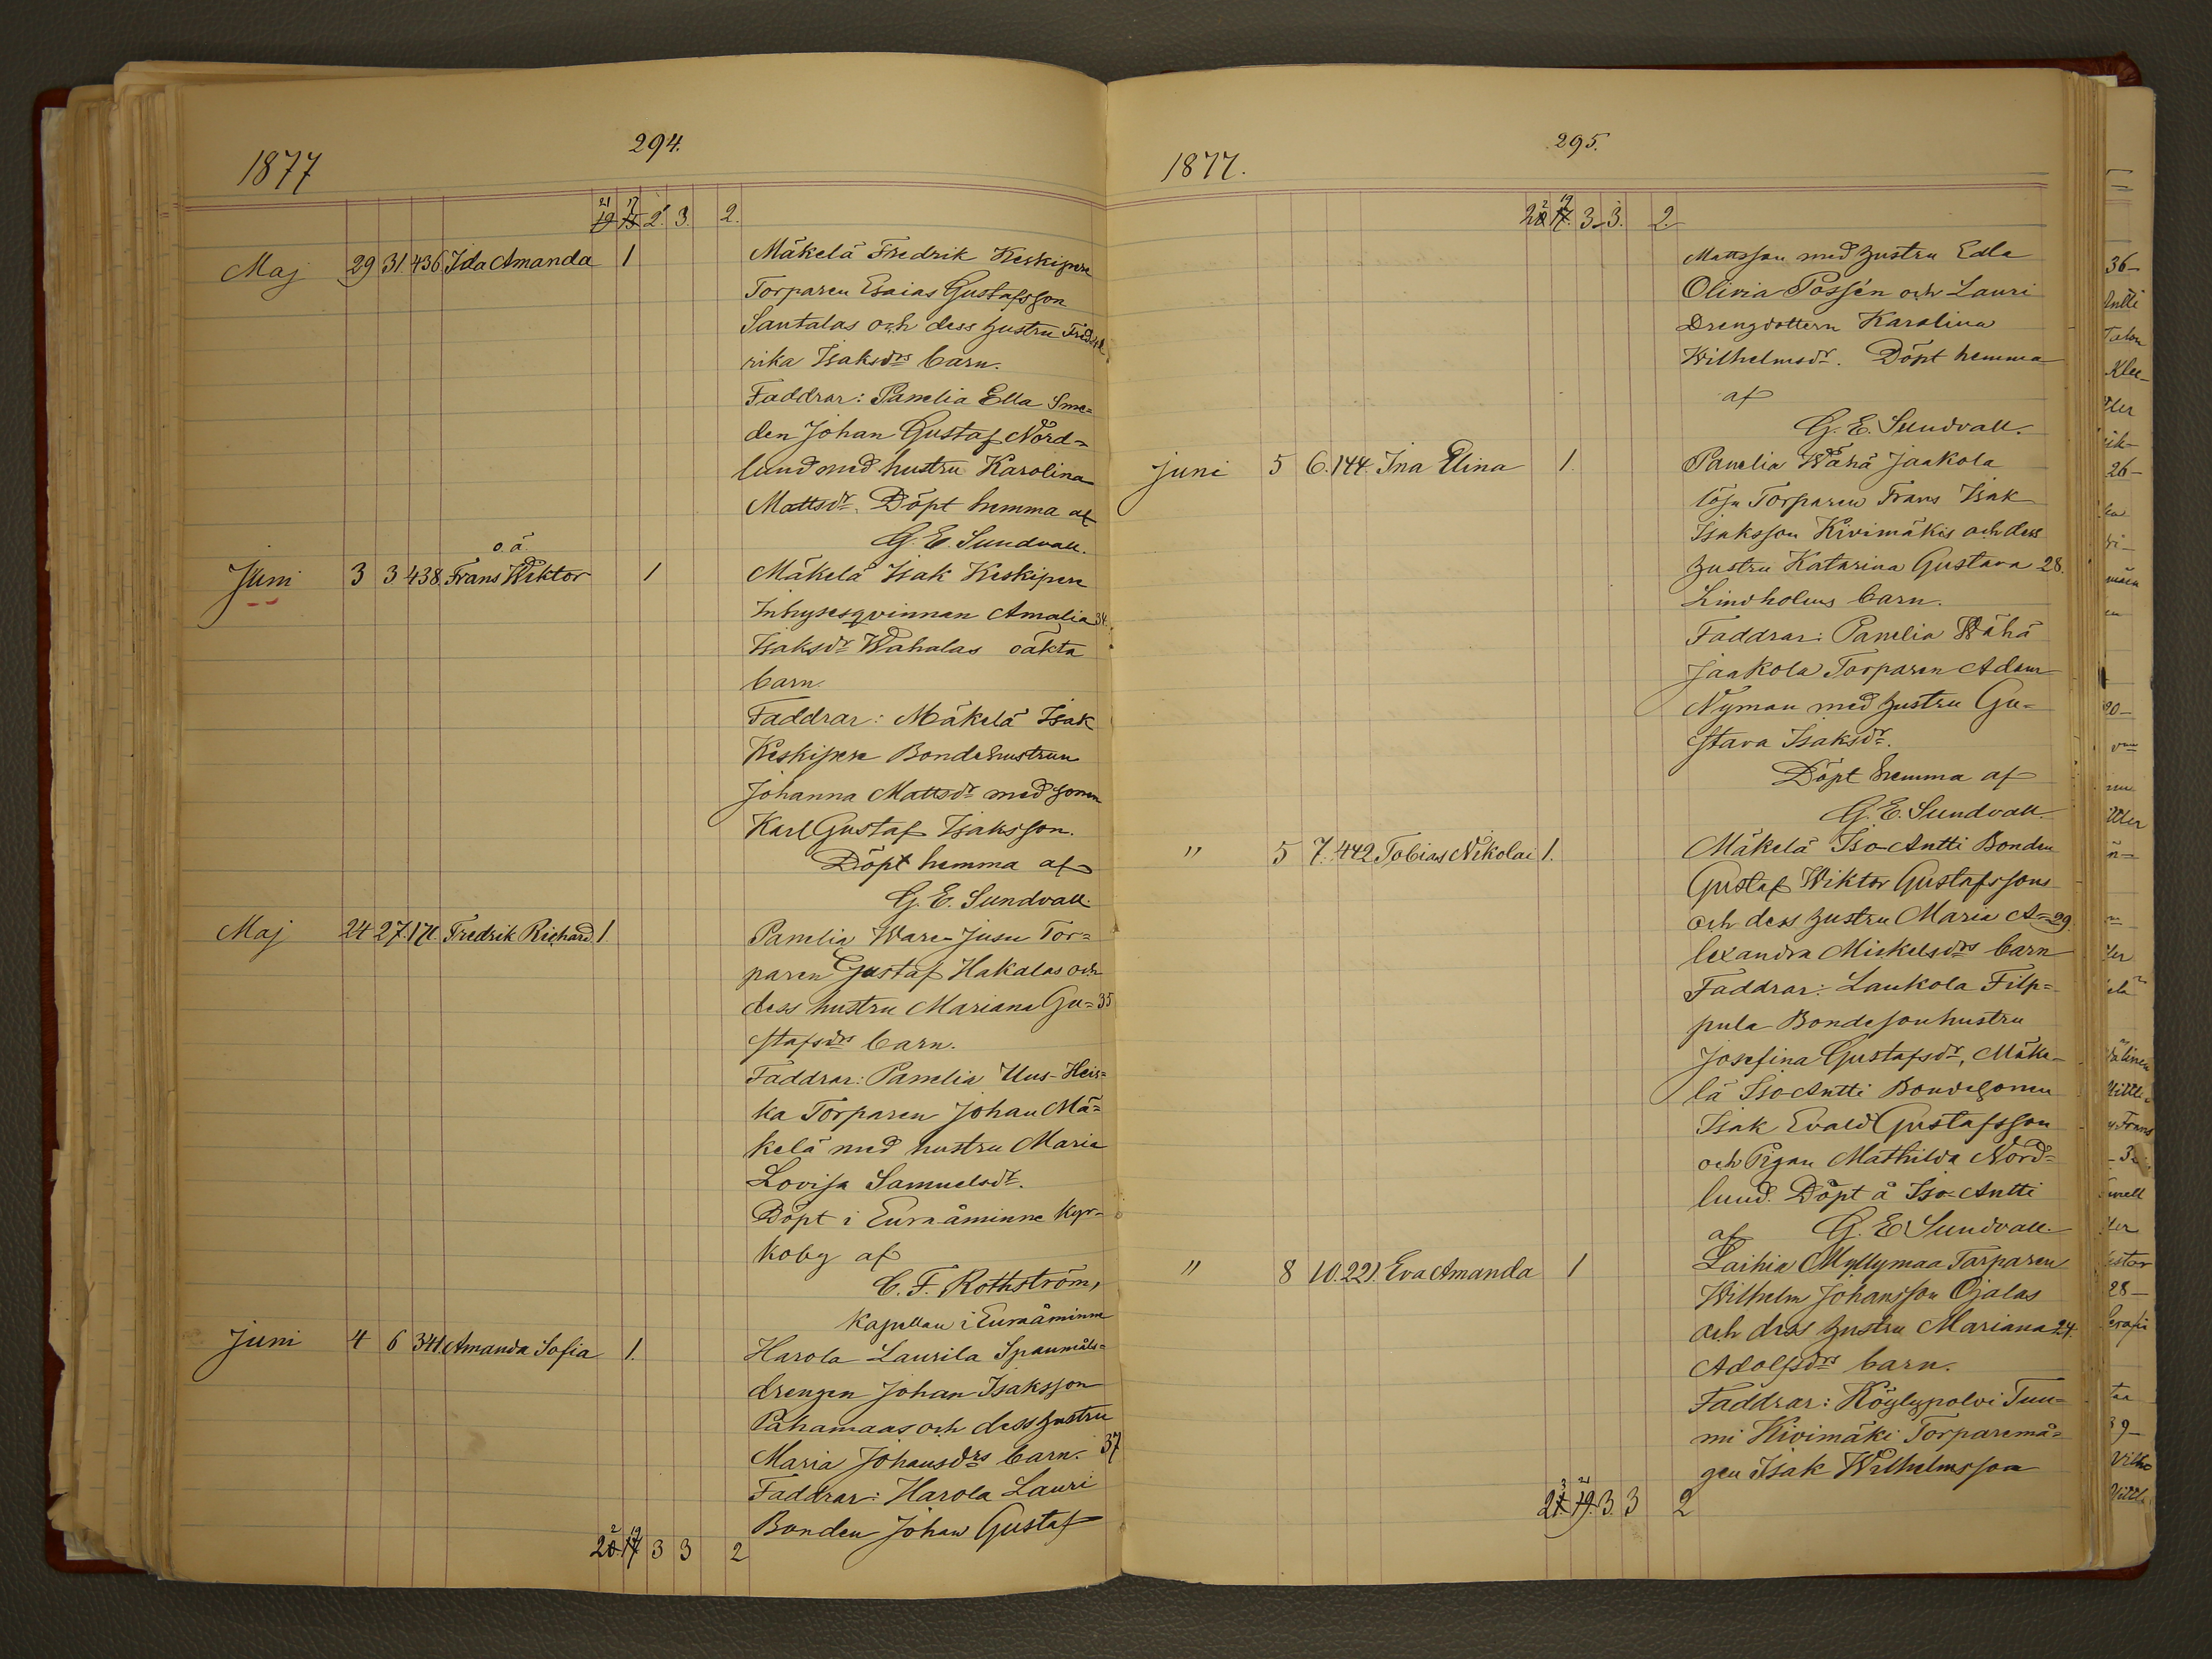 294.
1877
21 17
19 15 2. 3. 2.
Maj 29 31 436 Ida Amanda 1 Mäkelä Fredrik Keskipere
Torparen Esaias Gustafsson
Santalas och dess hustru Fred
rika Isaksdrs barn.
Faddrar: Panelia Ella Sme=
den Johan Gustaf Nord=
lund med hustru Karolina
Mattsdr. Döpt hemma af
G. E. Sundvall.
o. ä.
Juni 3 3 438. Frans Wiktor 1 Mäkelä Isak Keskipere
Inhysesqvinnan Amalia 34.
Isaksdr Wahalas oäkta
barn.
Faddrar: Mäkelä Isak
Keskipere Bondehustrun
Johanna Mattsdr med sonen
Karl Gustaf Isaksson.
Döpt hemma af
G. E. Sundvall.
Maj 24 27 171. Fredrik Richard 1. Panelia Ware-Jusu Tor=
paren Gustaf Hakalas och
dess hustru Mariana Gu= 35
stafsdrs barn.
Faddrar: Panelia Uus-Heis=
ka Torparen Johan Mä=
kelä med hustru Maria
Lovisa Samuelsdr.
Döpt i Euraåminne Kyr=
koby af
C. F. Rothström,
Kapellan i Euraåminne
Juni 4 6 341. Amanda Sofia 1. Harola Laurila Spanmåls=
drengen Johan Isaksson
Pahamaas och dess hustru
Maria Johansdrs barn. 37
Faddrar: Harola Lauri
Bonden Johan Gustaf
2 19
20. 17 3 3 2
295.
1877.
2 19
20 17. 3. 3. 2.
Mattsson med hustru Edla
Olivia Possén och Lauri
Drengdottern Karolina
Wilhelmsdr. Döpt hemma
af
G. E. Sundvall.
Juni 5 6. 144. Ina Elina 1. Panelia Wähä Jaakola
lösn Torparen Frans Isak
Isaksson Kivimäkis och dess
hustru Katarina Gustava 28.
Lindholms barn.
Faddrar: Panelia Wähä
Jaakola Torparen Adam
Nyman med hustru Gu=
stava Isaksdr.
Döpt hemma af
G. E. Sundvall.
" 5 7. 442 Tobias Nikolai 1. Mäkelä Iso-Antti Bonden
Gustaf Wiktor Gustafssons
och dess hustru Maria A= 29.
lexandra Mickelsdrs barn
Faddrar: Laukola Filp=
pula Bondesonhustru
Josefina Gustafsdr, Mäke-
lä Iso-Antti Bondesonen
Isak Evald Gustafsson
och Pigan Mathilda Nord=
lund. Döpt å Iso-Antti
af G. E. Sundvall.
" 8 10. 221. Eva Amanda 1 Laihia Myllymaa Torparen
Wilhelm Johansson Ojalas
och dess hustru Mariana 24.
Adolfsdrs barn.
Faddrar: Köylypolvi Tuu=
mi Kivimäki Torparemå=
gen Isak Wilhelmsson
3 21
21. 19. 3. 3 2